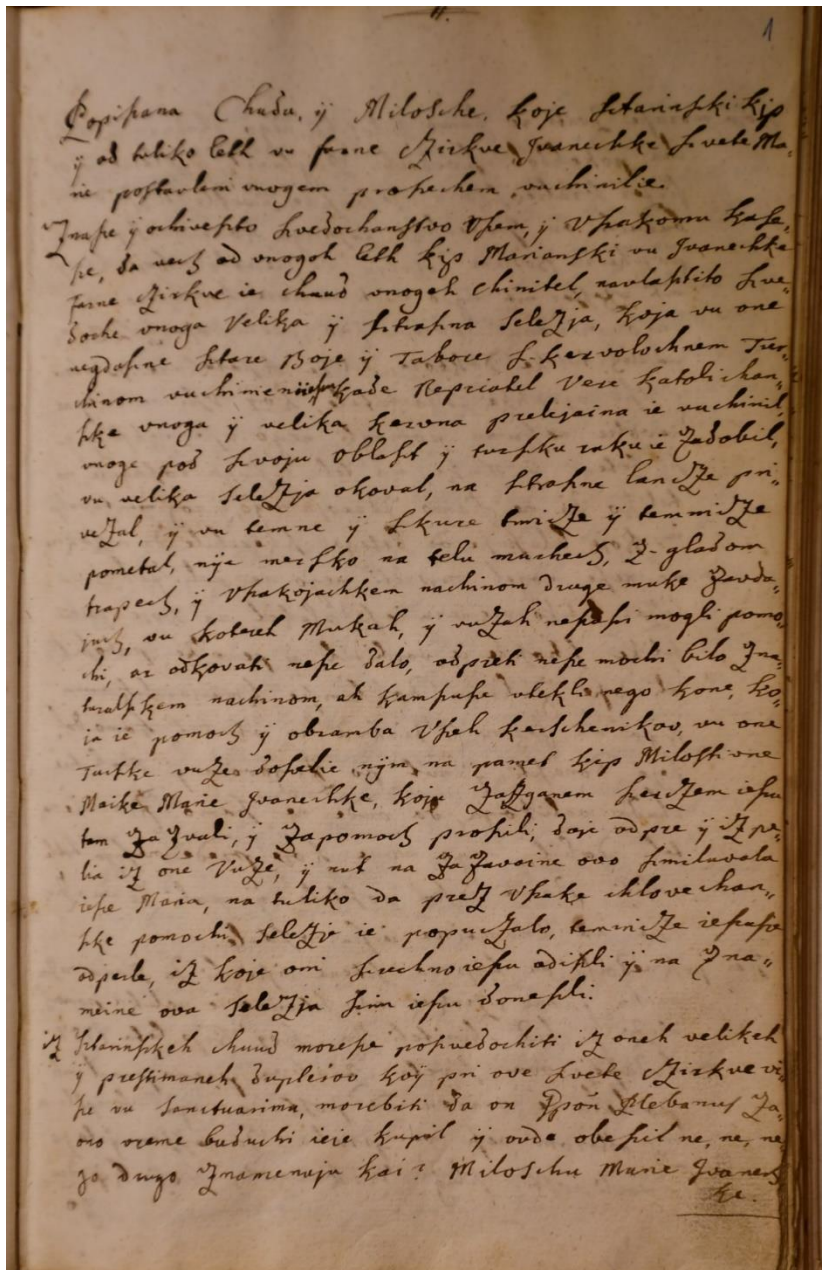 II.
1
Popiſana Chuda, ÿ Miloſche, koje ſtarinſki kip
ÿ od tuliko leth vu farne czirkve Jvanechke ſvete Ma-
rie poſtavleni vnogem proſechem vuchinilie.
Znaſe ÿ ochiveſto ſvedochanſtvo vſem, ÿ vſakomu kaſe-
ſe, da vech od vnogoh leth kip Marianſki vu Jvanechke
farne czirkve ie chuud vnogeh chinitel, navlaſtito ſve-
doche vnoga velika ÿ ſtraſna ſelezja, koja vu one
negdaſne ſtare Boje ÿ Tabore ſ kervolochnem Tur-
chinom vuchimeni kade Nepriatel vere katolichan-
ſke vnoga ÿ velika kervna prelijaina ie vuchinil,
vnoge pod ſvoju oblaſt ÿ turſku ruku ie zadobil,
vu velika ſelezja okoval, na ſtraſne lancze pri-
vezal, ÿ vu temne ÿ ſkure tmicze ÿ temnicze
pometal, nÿe merſko na telu muchech, z-gladom
trapech, ÿ vſakojachkem nachinom druge muke zavda-
juch, vu kotereh Mukah, ÿ vuzah neſeſi mogli pomo-
chi, ar odkovati neſe dalo, odpreti neſe mochi bilo zna-
turalſkem nachinom, ah kamſuſe vtekli nego kone, ko-
ja ie pomoch ÿ obramba vſeh kerſchenikov, vu one
Turſke vuze doſelie nÿm na pamet kip Miloſtivne
Maike Marie Jvanechke, koju zazganem ſerczem ieſu
tam zazvali, ÿ zapomoch proſili, daje odpre ÿ izpe-
lia iz one vuze, ÿ nut na zazvaine ovo ſmiluvala
ieſe Maria, na tuliko da prez vſake chlovechan-
ſke pomochi ſelezje ie popuczalo, temnicze ieſuſe
odperle, iz koje oni ſrechno ieſu odiſli ÿ na zna-
meine ova ſelezja ſim ieſu doneſli.
iz ſtarinſkeh chuud moreſe poſvedochiti iz oneh velikeh
ÿ preſtimaneh duplerov koÿ pri ove ſvete czirkve vi-
ſe vu ſanctuarimu, morebiti da on Gſpon Plebanuſ za
ovo vreme buduchi ieje kupil ÿ ovde obeſil ne, ne, ne-
go drugo znamenuju kai? Miloſchu Marie Jvanech
ke.